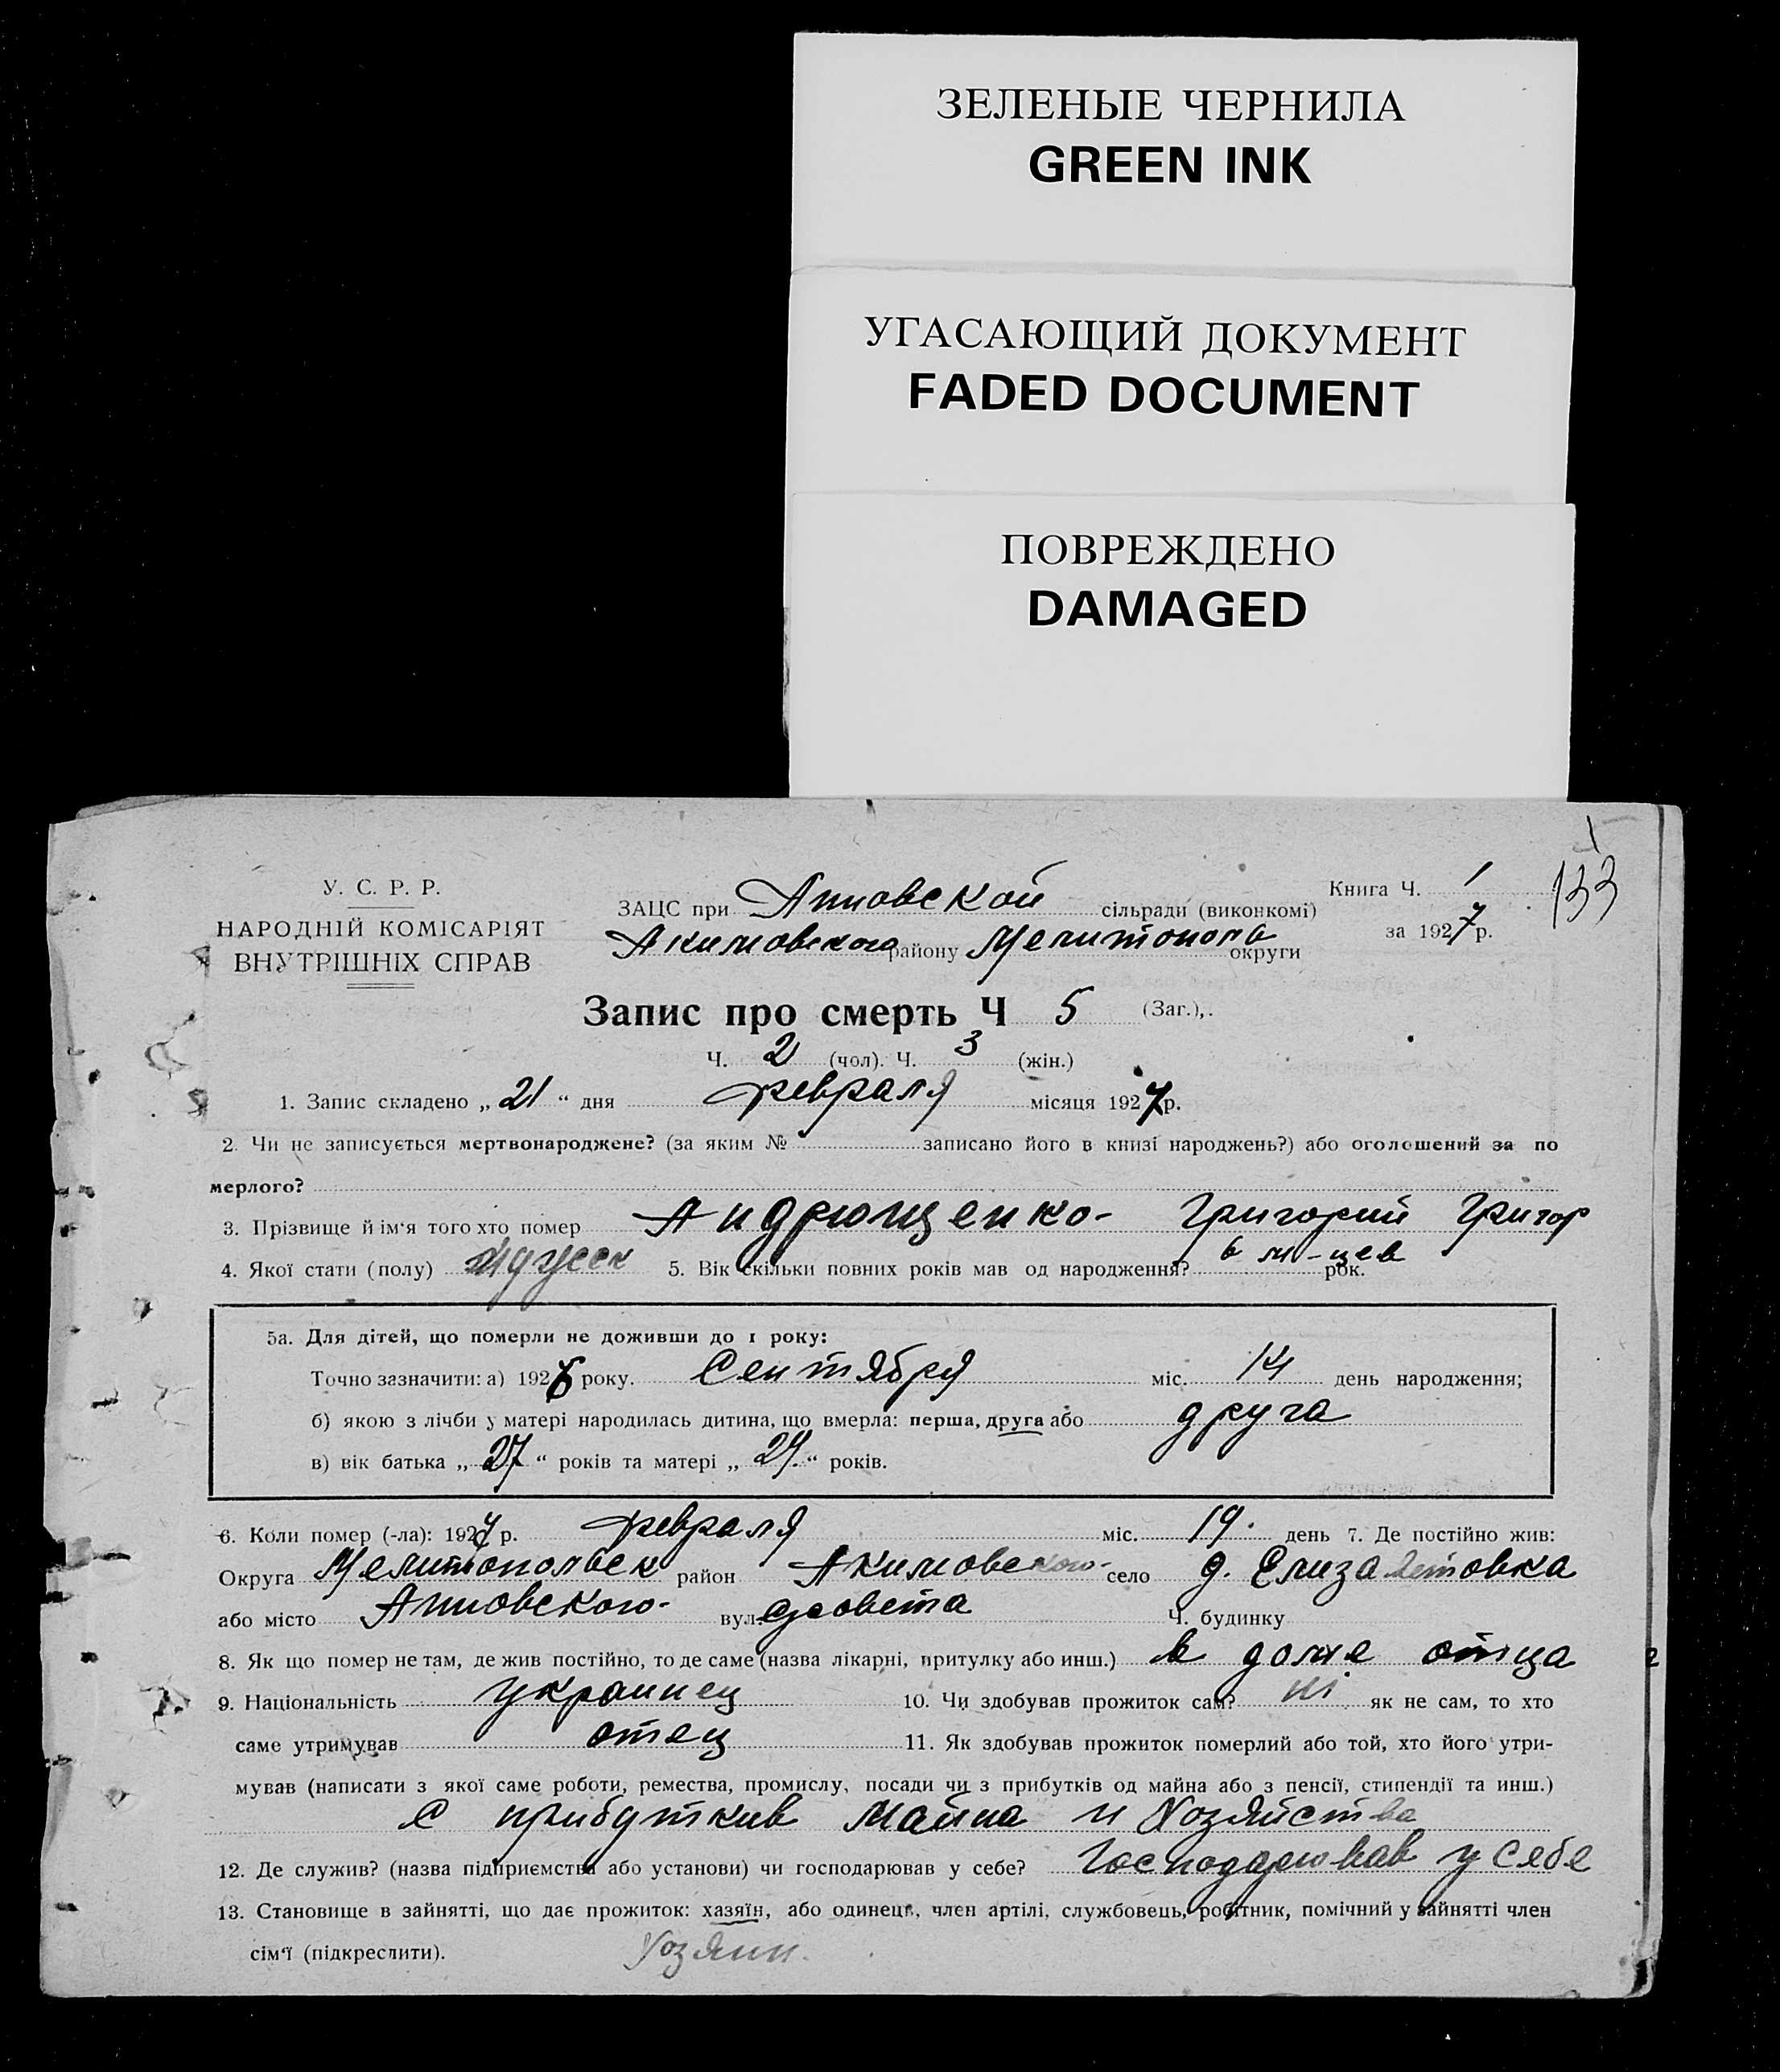 ЗЕЛЕНЫЕ ЧЕРНИЛА
GREEN INK
УГАСАЮЩИЙ ДОКУМЕНТ
FADED DOCUMENT
ПОВРЕЖДЕНО
DAMAGED
133
У. С. Р. Р.
НАРОДНІЙ КОМІСАРІЯТ
ВНУТРІШНІХ СПРАВ
Книга Ч. 1
за 1927 р.
ЗАЦС при Анновской сільради (виконкомі)
Акимовского району Мелитополь округи
Запис про смерть Ч 5 (Заг.),.
Ч. 2 (чол). Ч. 3 (жін.)
1. Запис складено „ 21 “ дня февраля місяця 1927 р.
2. Чи не записується мертвонароджене? (за яким № записано його в книзі народжень?) або оголошений за по
мерлого?
3. Прізвище й ім‘я того хто помер Андрющенко- Григорий Григор
4. Якої стати (полу) мужеск 5. Вік скільки повних років мав од народження? 6 м-цев рок.
5а. Для дітей, що померли не доживши до 1 року:
Точно зазначити: а) 1926 року. Сентября міс. 14 день народження;
б) якою з лічби у матері народилась дитина, що вмерла: перша, друга або друга
в) вік батька „ 27 “ років та матері „ 24. “ років.
6. Коли помер (-ла): 1927 р. февраля міс. 19. день 7. Де постійно жив:
Округа Мелитопольск район Акимовского- село д. Елизаветовка
або місто Анновского- вул. с/совета Ч. будинку
8. Як що помер не там, де жив постійно, то де саме (назва лікарні, притулку або инш.) в доме отца
9. Національність украинец 10. Чи здобував прожиток сам? ні як не сам, то хто
саме утримував отец 11. Як здобував прожиток померлий або той, хто його утри-
мував (написати з якої саме роботи, ремества, промислу, посади чи з прибутків од майна або з пенсії, стипендії та инш.)
с прибуткив майна и хозяйства
12. Де служив? (назва підприємства або установи) чи господарював у себе? Господарював у себе
13. Становище в зайнятті, що дає прожиток: хазяїн, або одинець, член артілі, службовець, робітник, помічний у зайнятті член
сім‘ї (підкреслити). Хозяин.